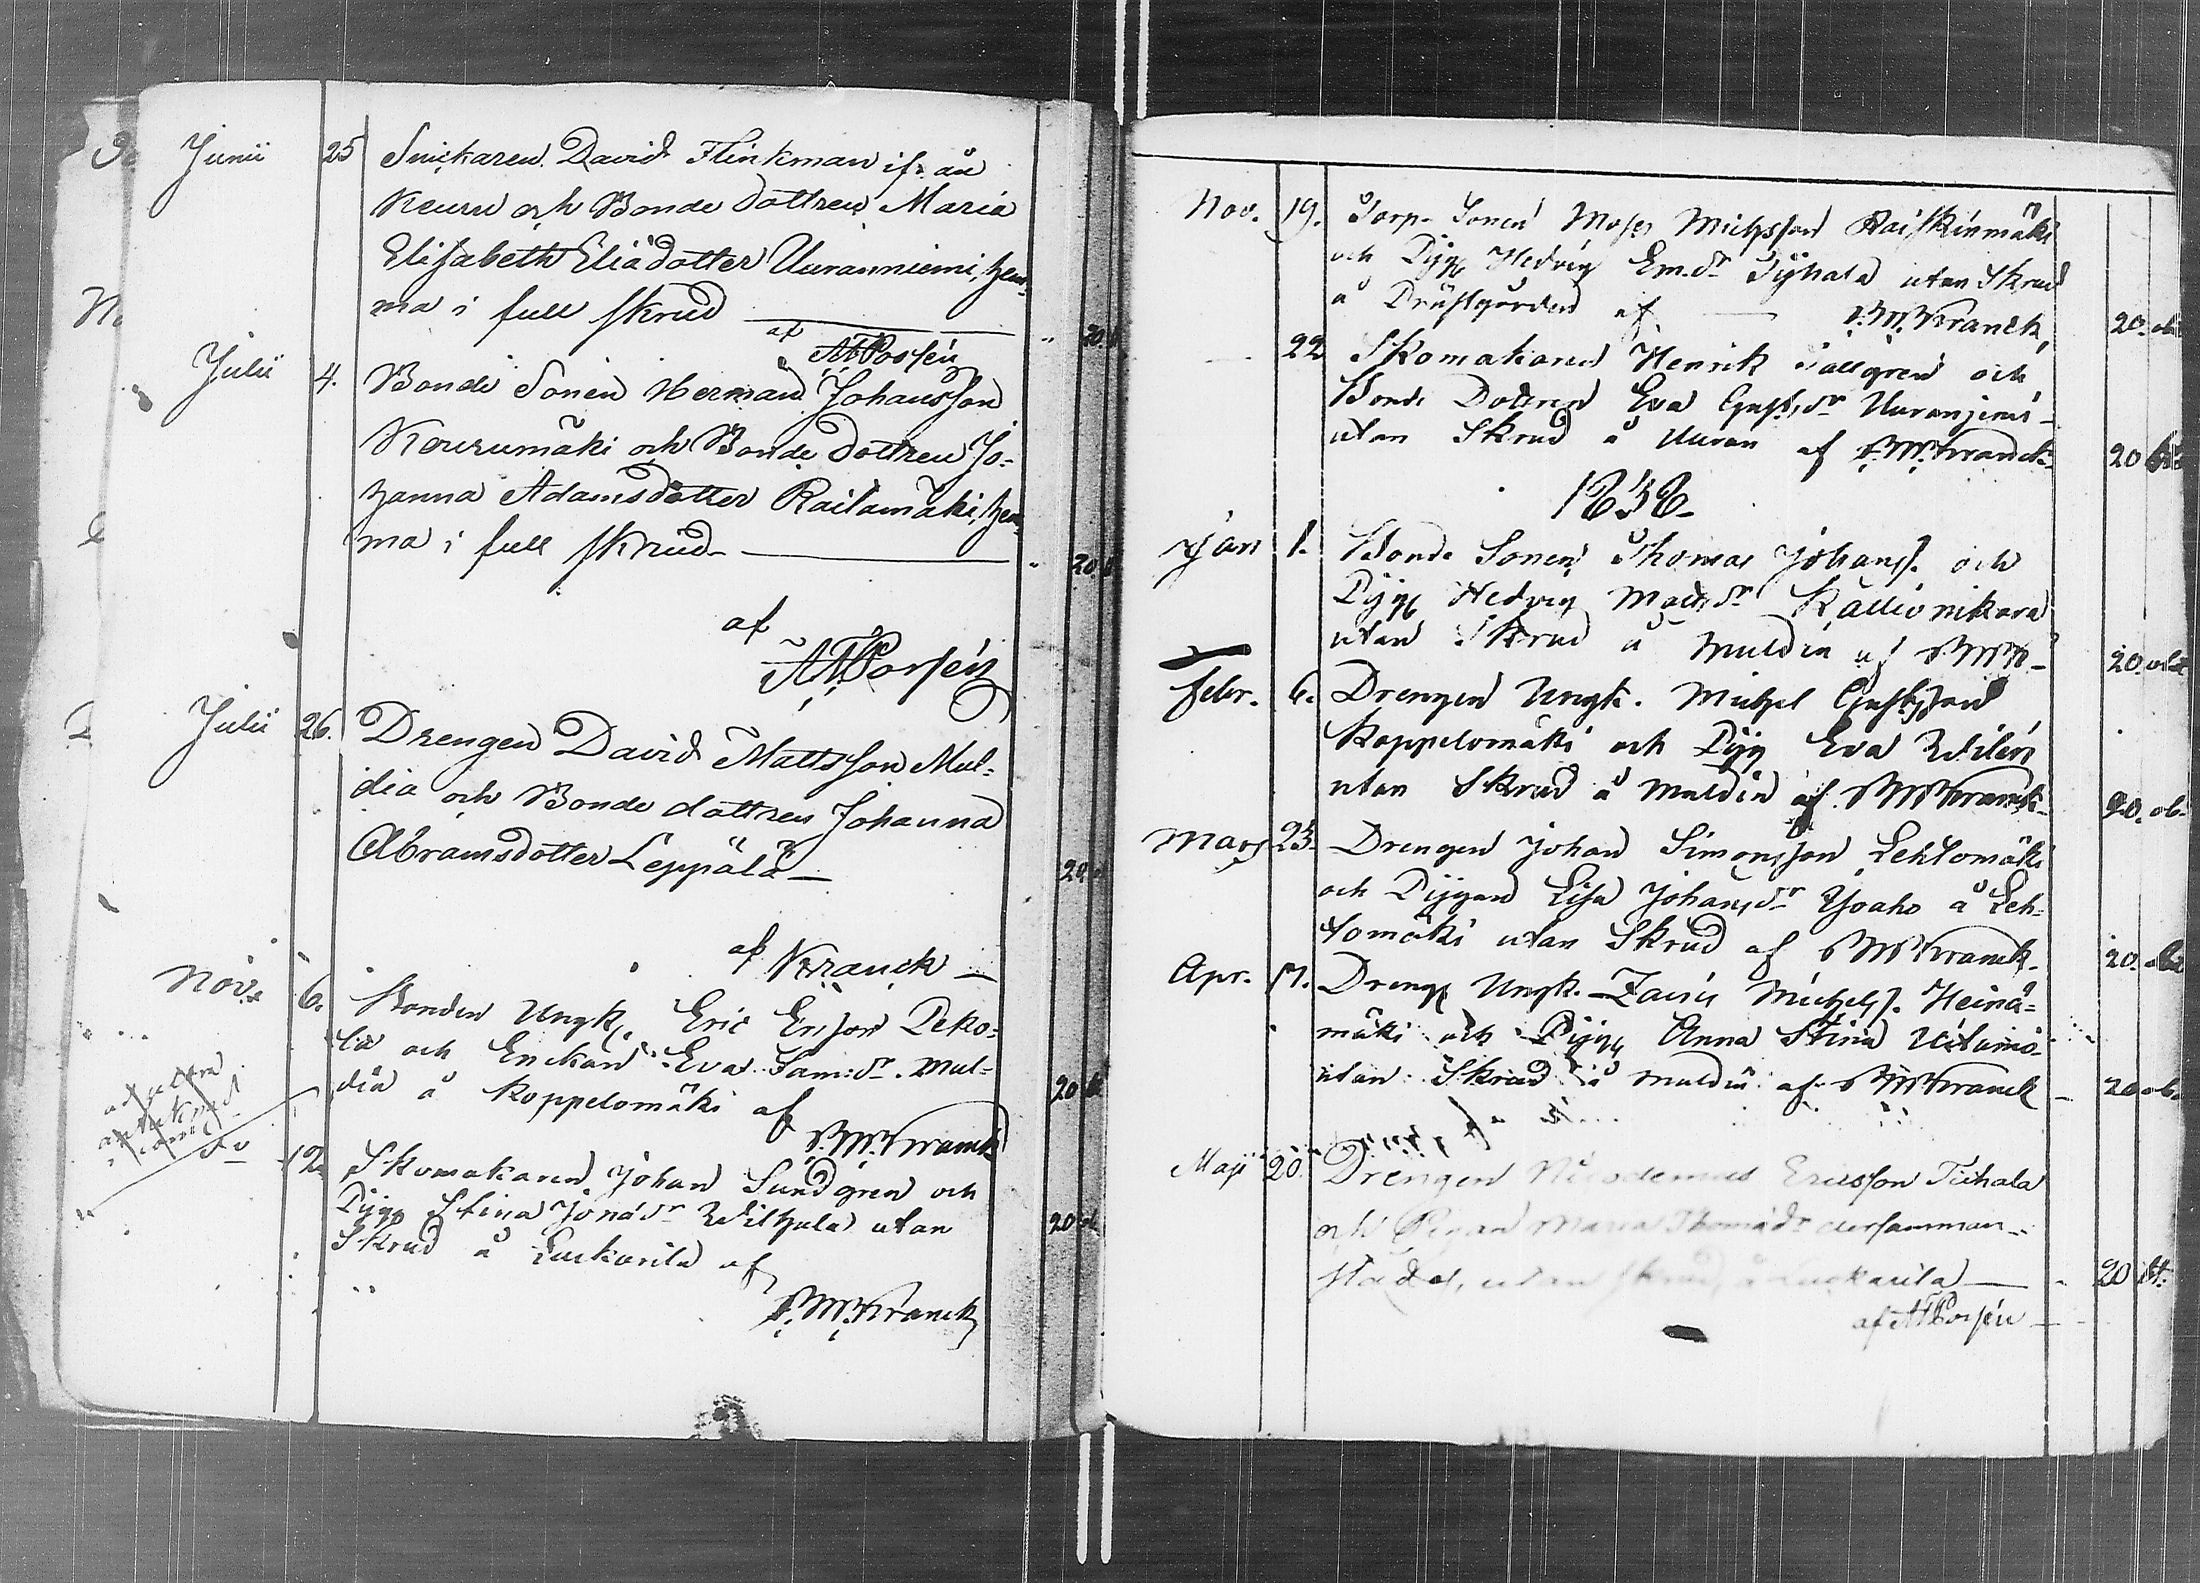 Junii 25 Snickaren David Flinkman ifrån
Keuru och Bonde dottren Maria
Elisabeth Eliädotter Uuranniemi, hem-
ma i full skrud 20
af
A Porsén
Julii 4. Bonde Sonen Herman Johansson
Kourumäki och Bonde dottren Jo-
hanna Adamsdotter Raitamäki, hem-
ma i full skrud 20
af
A Porsén
Julii 26. Drengen David Mattsson Mul-
dia och Bonde dottren Johanna
Abramsdotter Leppälä 20
af Kranck
Nov. 6. Bonden Ungk. Eric Ersson Peko-
la och Enckan Eva Sam:dr. Mul-
dia å Koppelomäki af 20
Kranck
12 Skomakaren Johan Sundgren och
Pig. Stina Jonädr Wilhula utan 20
Skrud å Luckarila af
Kranck
Nov. 19. Torp. Sonen Moses Michsson Raiskinmäki
och Pig. Hedvig Em.dr Tyhala utan Skrud
å Prästgården af Kranck 20.
22 Skomakaren Henrik Tallgren och
Bonde Dottren Eva Gust.dr Uuranjemi
utan Skrud å Uuran af Kranck 20
1838
Jan 1. Bonde Sonen Thomas Johans. och
Pig. Hedvig Matsdr Kallionikara
utan Skrud å Muldia af 20.
Febr. 6. Drengen Ungk. Michel Gustsson
Koppelomäki och Pig. Eva Wilén
utan Skrud å Muldia af Kranck 20.
Mars 23. Drengen Johan Simonsson Lehtomäki
och Pigan Lisa Johansdr Yoaho å Leh-
tomäki utan Skrud af Kranck 20.
Apr. 17. Dreng. Ungk. Michels. Heinä-
mäki och Pig. Anna Stina
utan Skrud å Muldia af Kranck 20
Maji 20. Drengen Nicodemus Ericsson Tiihala
och Pigan Maria Thomädr dersamman-
städes, utan skrud, å Luckarila 20
af A Porsén